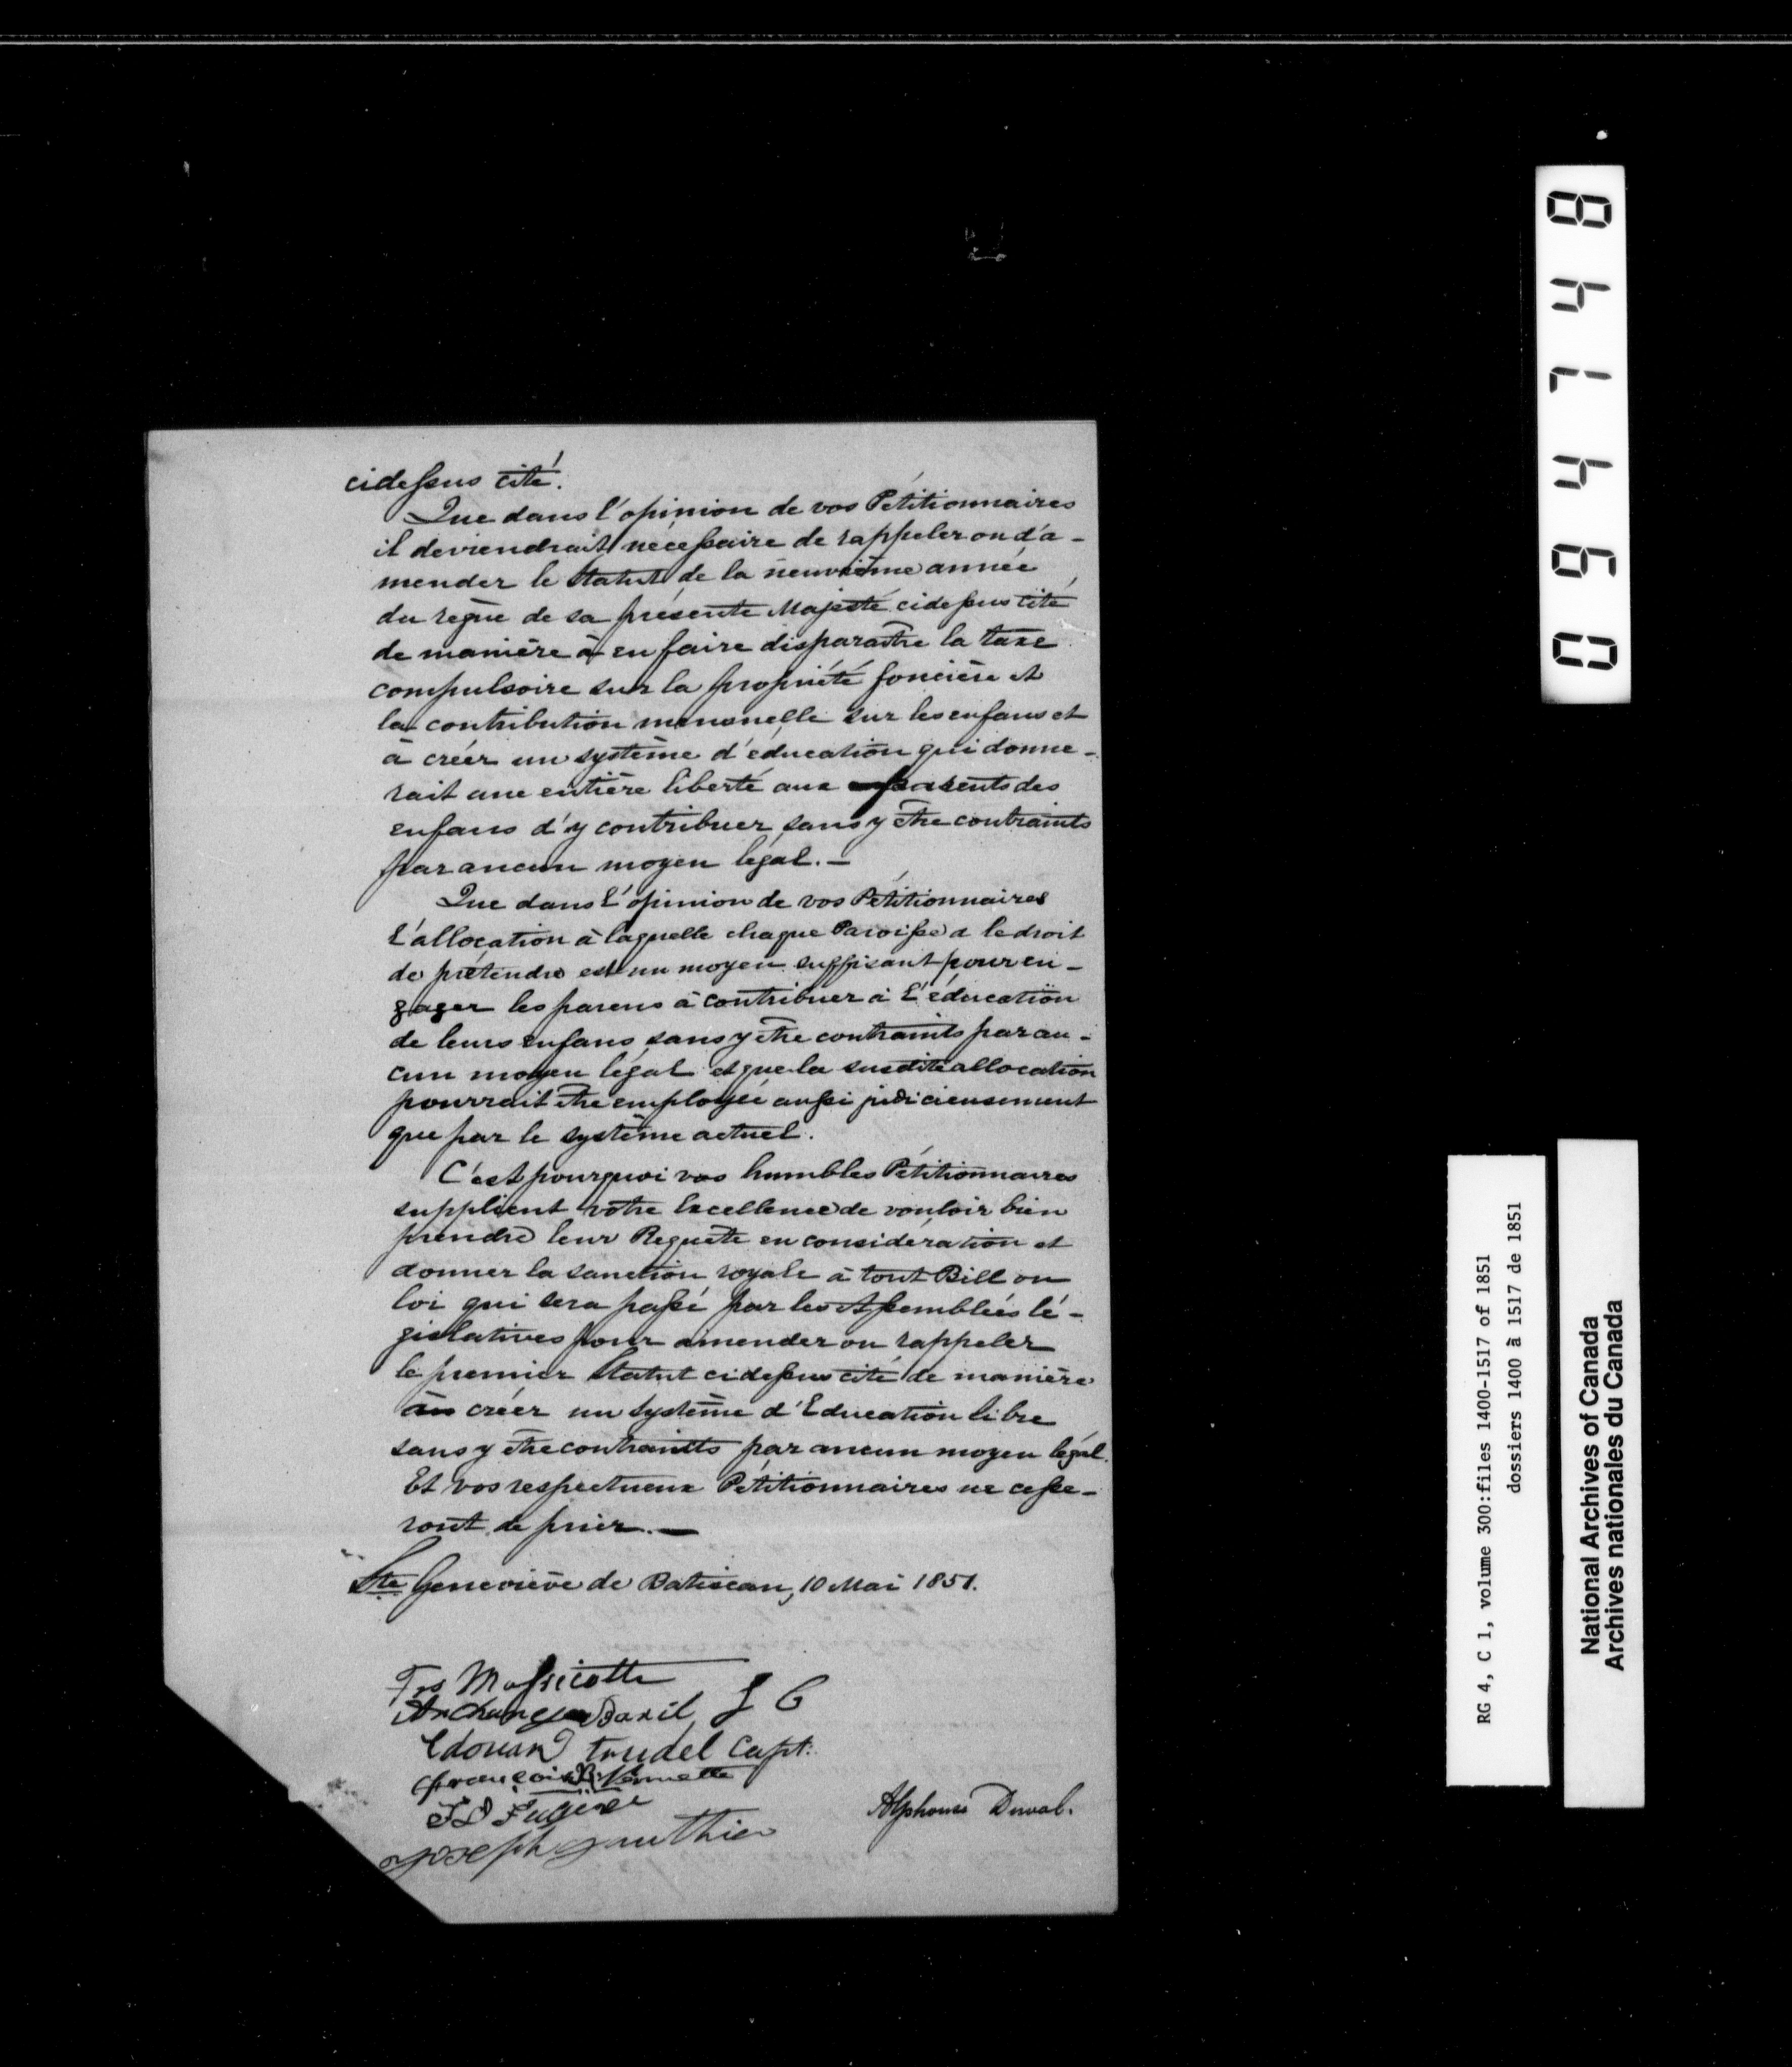 cidessus cité.
Que dans l'opinion de vos Pétitionnaires
il deviendrait nécessaire de rappeler ou d'a-
mender le Statut de la neuvième année
du règne de sa présente Majesté cidessus cité
de manière à en faire disparaître la taxe
compulsoire sur la propriété foncière et
la contribution mensuelle sur les enfans et
à créer un système d'éducation qui donne-
rait une entière liberté aux parents des
enfans d'y contribuer sans y être contraints
par aucun moyen légal. —
Que dans l'opinion de vos Pétitionnaires
l'allocation à laquelle chaque Paroisse a le droit
de prétendre est un moyen suffisant pour en-
gager les parens à contribuer à l'éducation
de leurs enfans sans y être contraints par au-
cun moyen légal et que la susdite allocation
pourrait être employée aussi judicieusement
que par le système actuel.
C'est pourquoi vos humbles Pétitionnaires
supplient votre Excellence de vouloir bien
prendre leur Requête en considération et
donner la sanction royale à tout Bill ou
loi qui sera passé par les Assemblées lé-
gislatives pour amender ou rappeler
le premier Statut cidessus cité de manière
à créer un système d'Education libre
sans y être contraints par aucun moyen légal.
Et vos respectueux Pétitionnaires ne cesse-
ront de prier. —
Ste Geneviève de Batiscan, 10 Mai 1851.
Frs Massicotte
Archange Baril J C
Edouard Trudel Capt.
François
Joseph Gauthier
Alphonse Duval.
094748
RG 4, C 1, volume 300:files 1400-1517 of 1851
dossiers 1400 à 1517 de 1851
National Archives of Canada
Archives nationales du Canada